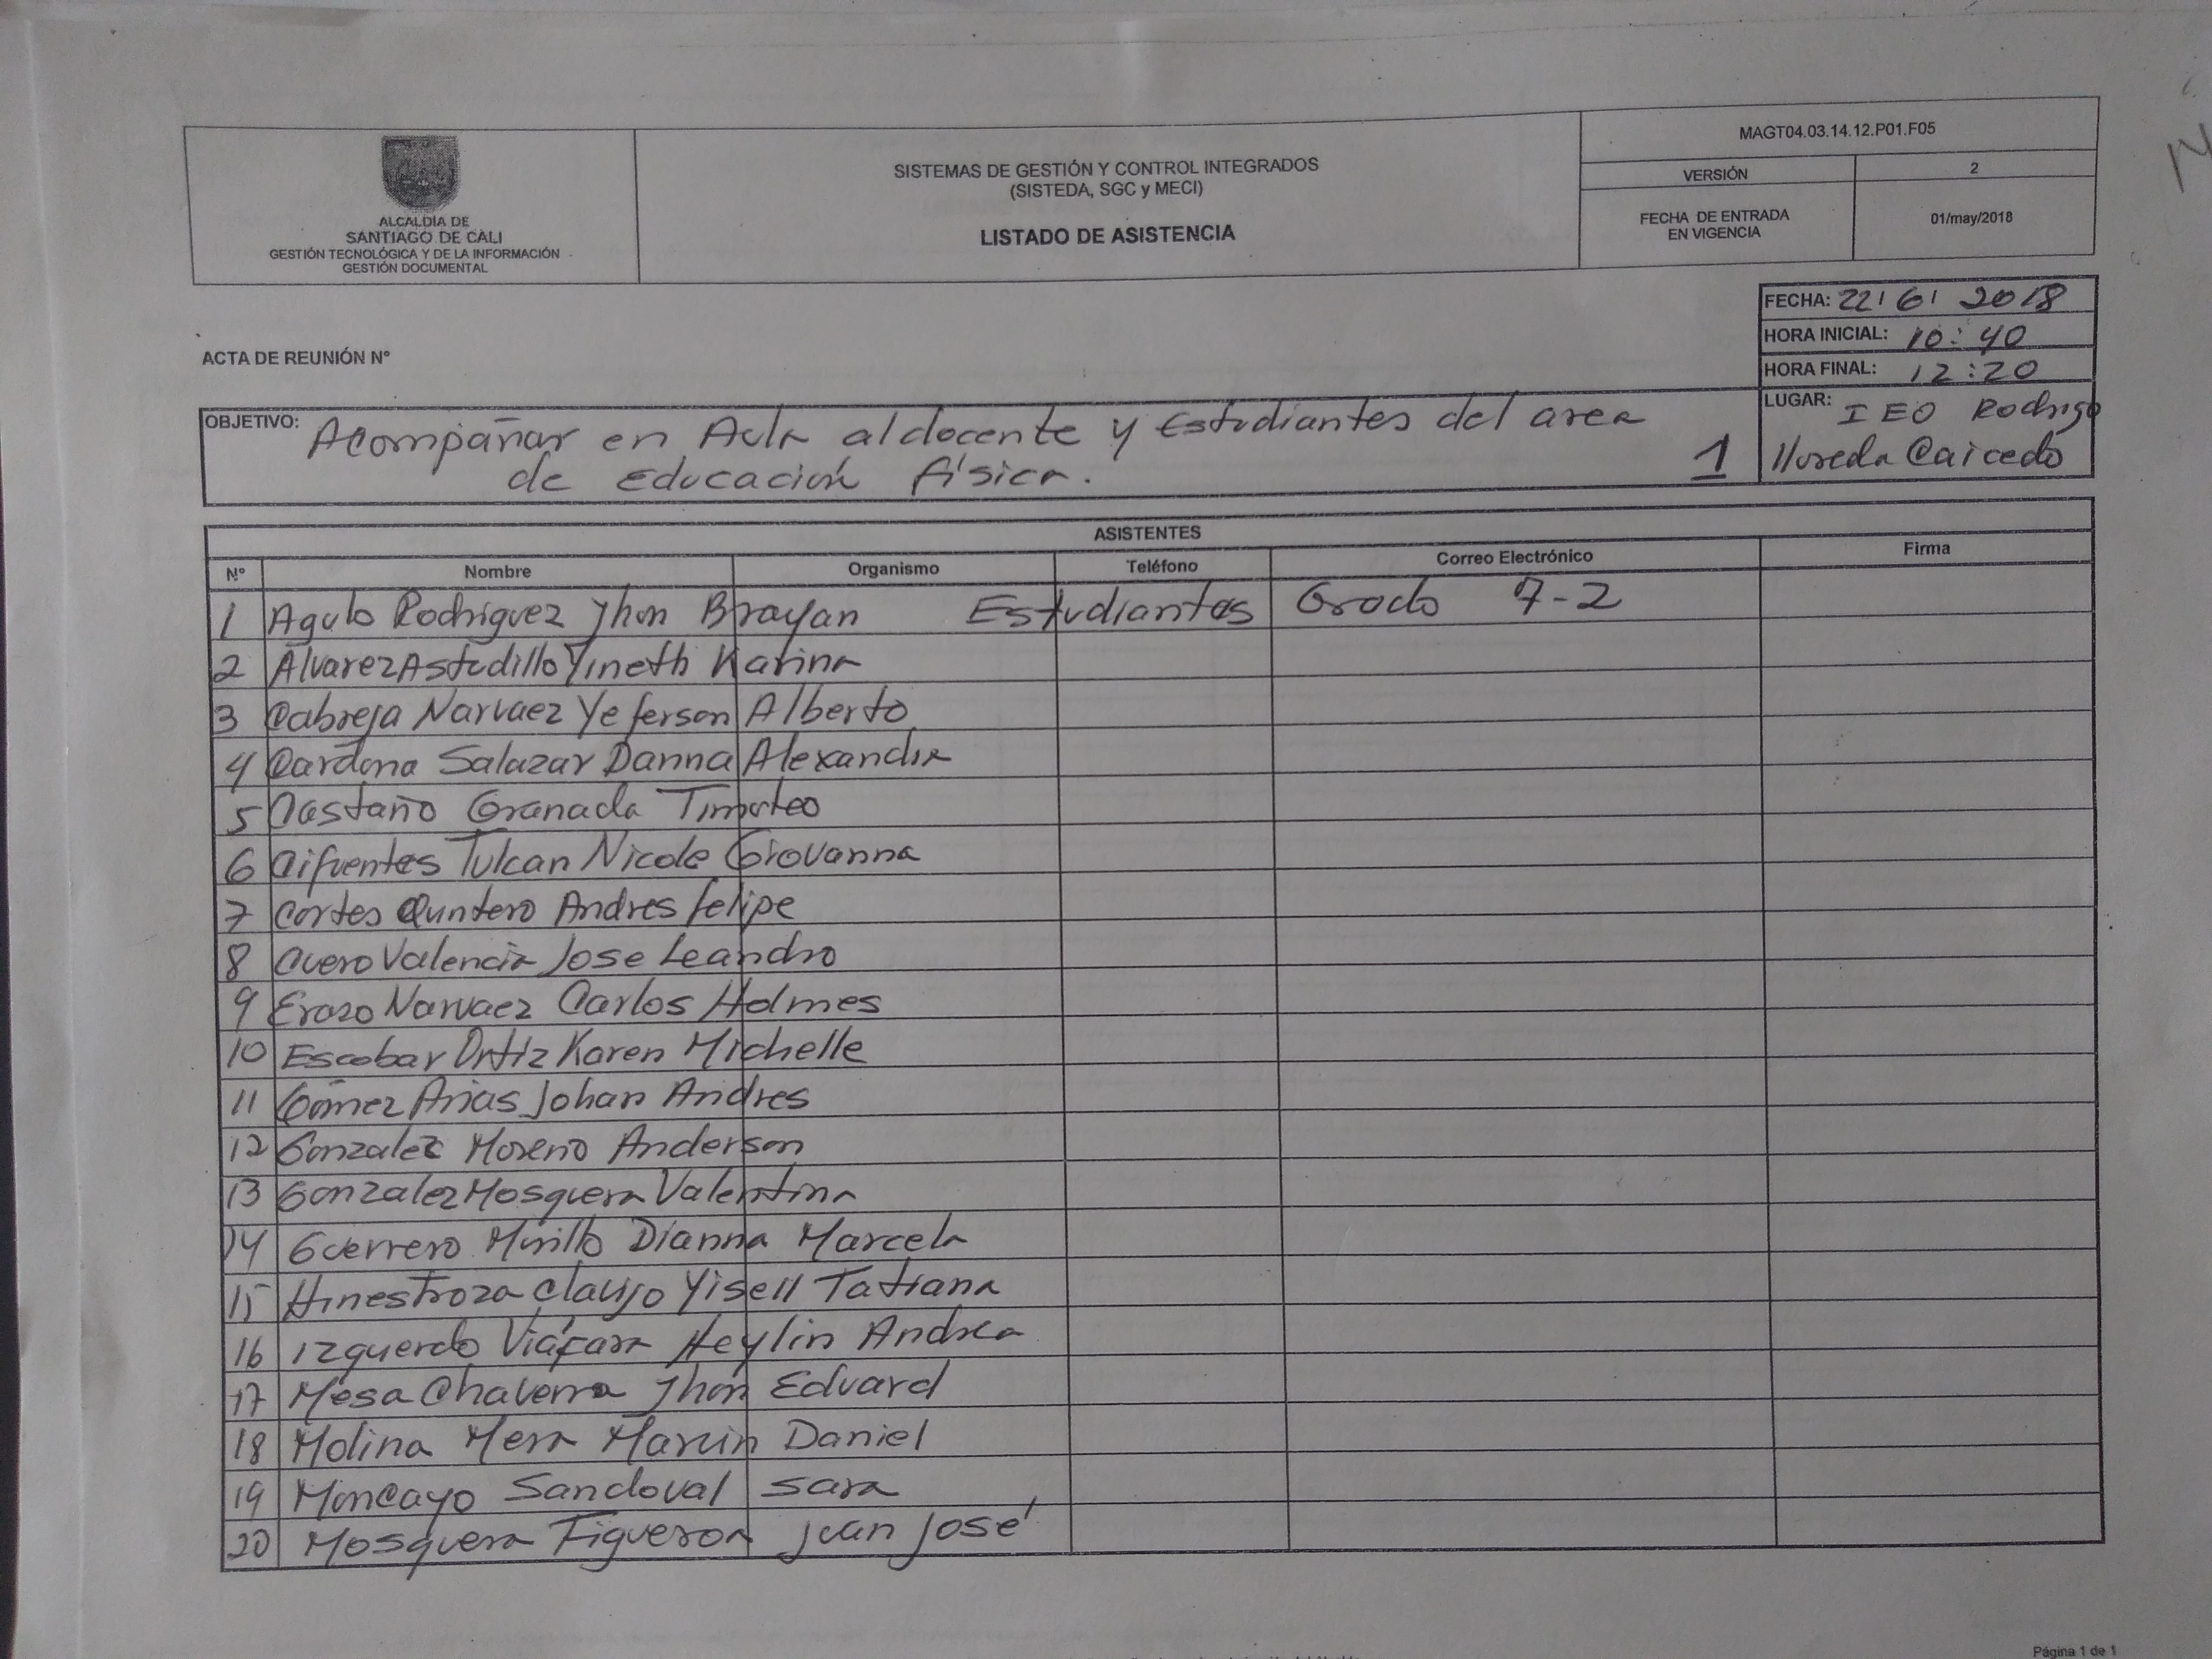 MAGT04.03.14.12.P01.F05
ALCALDÍA DE
SANTIAGO DE CALI
GESTIÓN TECNOLÓGICA Y DE LA INFORMACIÓN
GESTIÓN DOCUMENTAL
SISTEMAS DE GESTIÓN Y CONTROL INTEGRADOS
(SISTEDA, SGC y MECI)
LISTADO DE ASISTENCIA
VERSIÓN 2
FECHA DE ENTRADA
EN VIGENCIA
01/may/2018
FECHA: 22/6/2018
HORA INICIAL: 10:40
ACTA DE REUNIÓN Nº
HORA FINAL: 12:20
LUGAR: IEO Rodrigo
Lloreda Caicedo
OBJETIVO: Acompañar en Aula al docente y Estudiantes del area
de Educación física. 1
ASISTENTES
Nº Nombre Organismo Teléfono Correo Electrónico Firma
1 Agulo Rodriguez Jhon Brayan Estudiantes Grado 7-2
2 Alvarez Astudillo Yineth Karina
3 Cabreja Narvaez Yeferson Alberto
4 Cardona Salazar Danna Alexandra
5 Castaño Granada Timoteo
6 Cifuentes Tulcan Nicole Giovanna
7 Cortes Quntero Andres felipe
8 Cuero Valencia Jose Leandro
9 Erazo Narvaez Carlos Holmes
10 Escobar Ortiz Karen Michelle
11 Gómez Arias Johan Andres
12 Gonzalez Moreno Anderson
13 Gonzalez Mosquera Valentina
14 Guerrero Murillo Dianna Marcela
15 Hinestroza Clavijo Yisell Tatiana
16 Izquerdo Viáfara Heylin Andrea
17 Mesa Chaverra Jhon Eduard
18 Molina Mera Marcin Daniel
19 Moncayo Sandoval Sara
20 Mosquera Figueroa Juan José
Página 1 de 1